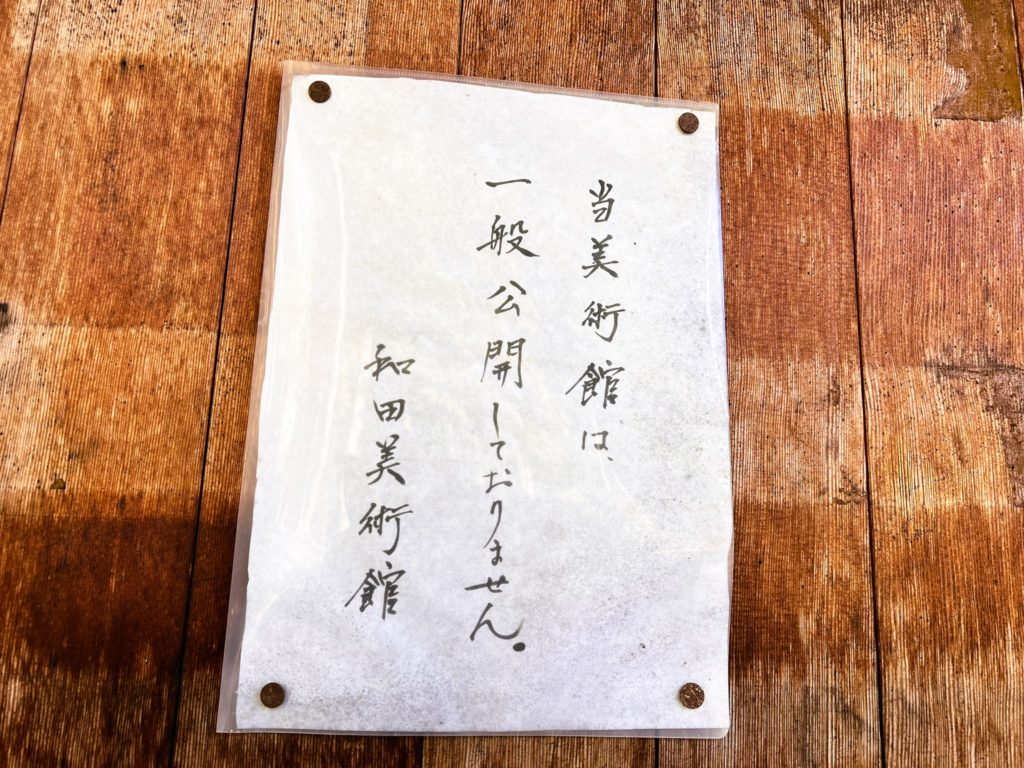 当美術館は、
一般公開しておりません。
和田美術館